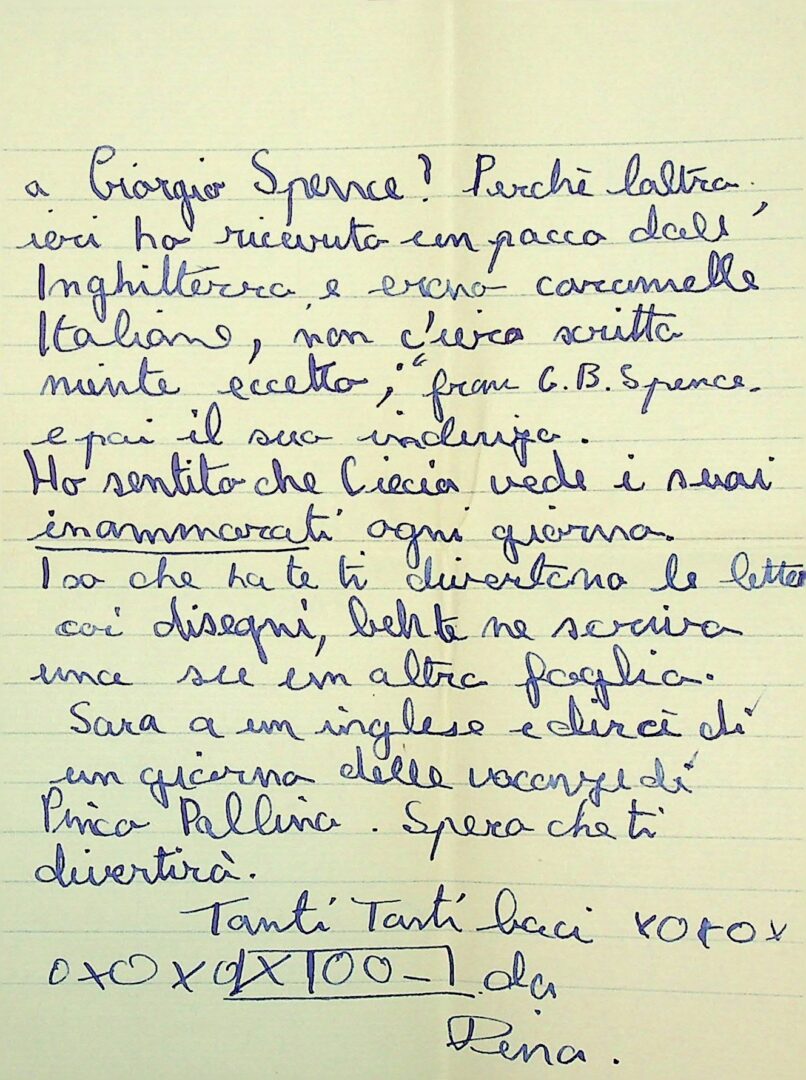 a Giorgio Spence? Perchè laltra
ieri ho ricevuto un pacco dall'
Inghilterra e erano caramelle
Italiane, non c'era scritta
niente eccetto, "from G.B. Spence.
e poi il suo indirizo.
Ho sentito che Ciccia vede i suoi
inammorati ogni giorno.
Io so che ha te ti divertono le letter
coi disegni, behte ne scrivro
una su un altro foglio.
Sara a un inglese e dirà di
un giorno delle vacanze di
Pinco Pallino. Spero che ti
divertirà.
Tanti Tanti baci xoxox
oxoxo X 100 - da
Pina.